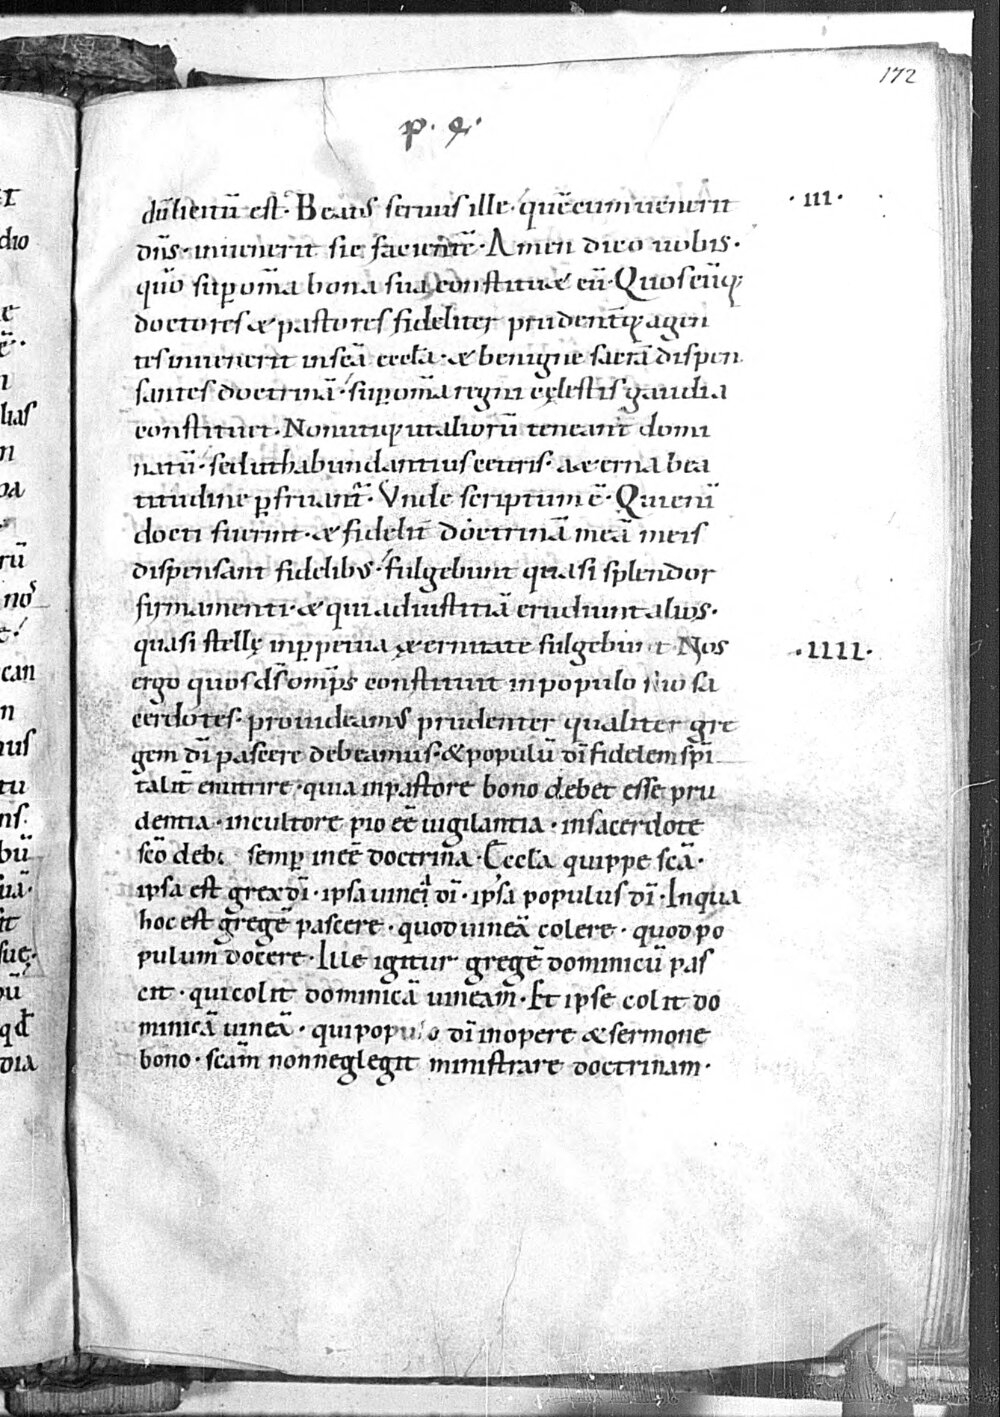 172
p. &.
dũ licitũ est· Beatus seruus ille· quẽ cum uenerit · III ·
dñs· inuenerit sic facientẽ· Amen dico uobis·
qũo sup om̃a bona sua constituæ eũ· Quoscũq;
doctores & pastores fideliter prudentq; agen
tes inuenerit in scã ecclã· & benigne sacrã dispen
santes doctrinã· sup om̃a regni cęlestis gaudia
constituet· Non utiq; ut aliorũ teneant domi
natũ· sed ut habundantius cet̃is· æterna bea
titudine pfruant̃· Vnde scriptum ẽ· Qui enĩ
docti fuerint· & fidelit̃ doctrinã meã meis
dispensant fidelibus· fulgebunt quasi splendor
firmamenti· & qui ad iustitiã erudiunt alios·
quasi stellę in ppetua æternitate fulgebunt Nos · IIII ·
ergo quos d̃s om̃ps constituit in populo suo sa
cerdotes· prouideamus prudenter qualiter gre
gem dĩ pascere debeamus· & populũ dĩ fidelem spĩ
talit̃ enutrire· quia in pastore bono debet esse pru
dentia· in cultore pio eẽ uigilantia· in sacerdote
scõ deb semp in eẽ doctrina· Eccl̃a quippe scã·
ipsa est grex dĩ· ipsa uinea dĩ· ipsa populus dĩ· In qua
hoc est gregẽ pascere· quod uineã colere· quod po
pulum docere· Ille igitur gregẽ dominicũ pas
cit· qui colit dominicã uineam· Et ipse colit do
minicã uineã· qui populo dĩ in opere & sermone
bono· scam̃ non neglegit ministrare doctrinam·